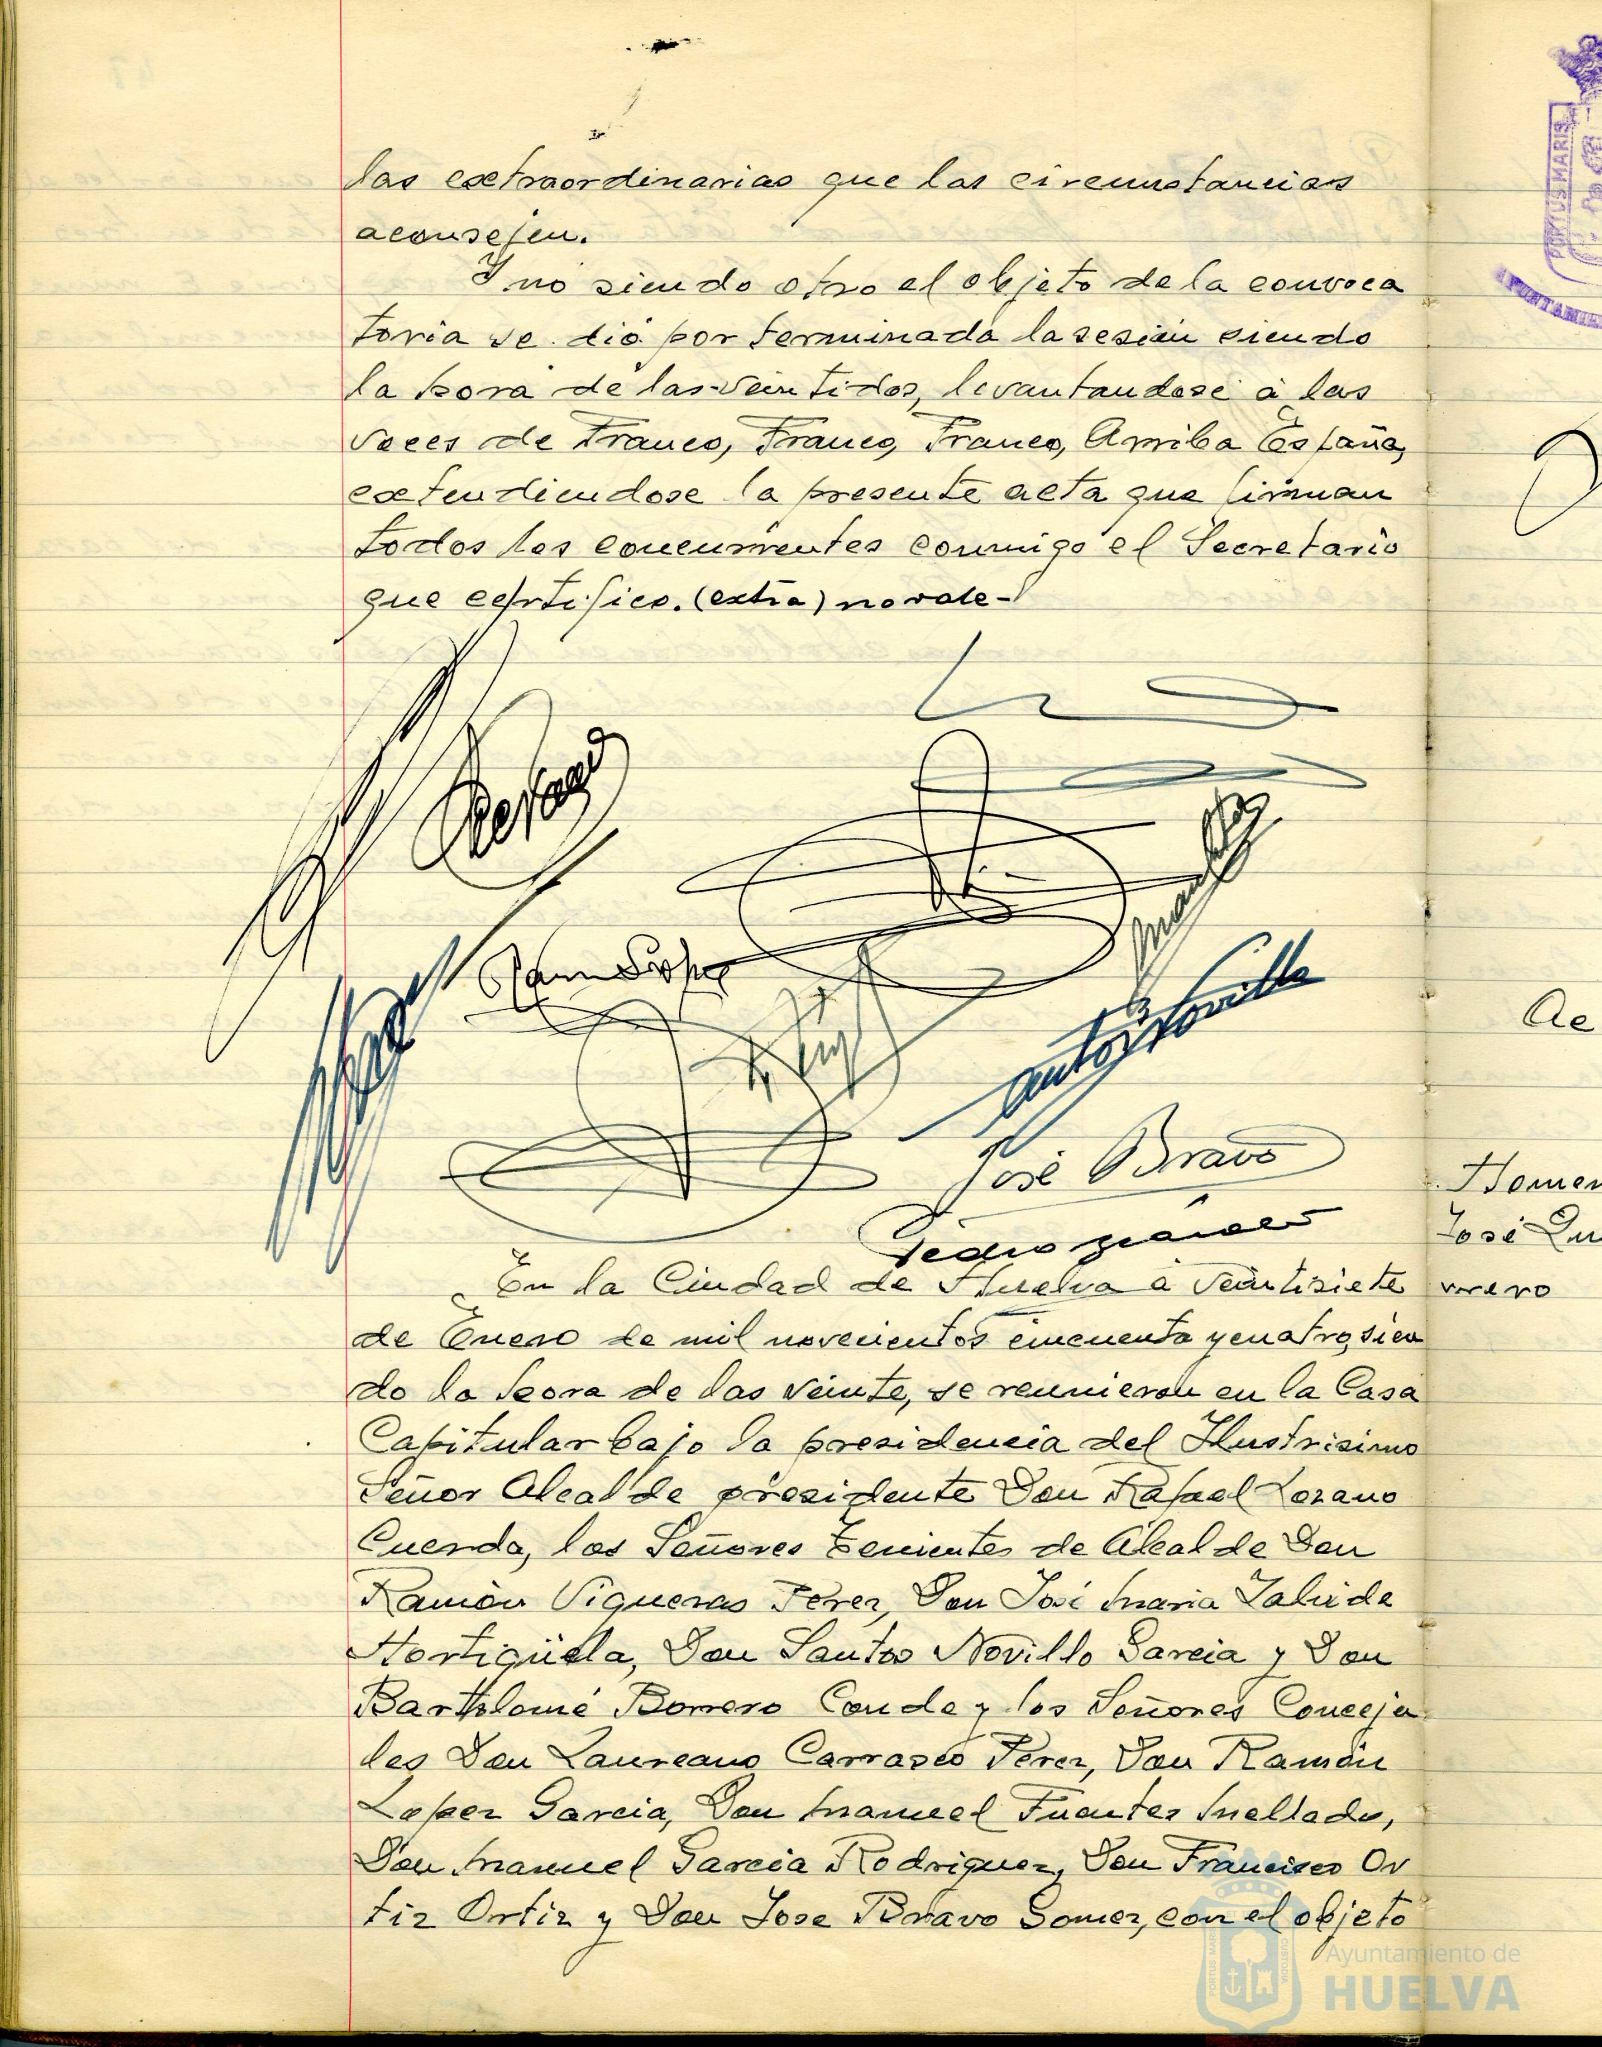 las extraordinarias que las circunstancias
aconsejen.
Y no siendo otro el objeto de la convoca
toria se dió por terminada la sesión siendo
la hora de las veintidos, levantandose a las
voces de Franco, Franco, Franco, Arriba España,
extendiendose la presente acta que firman
todos los concurrentes conmigo el Secretario
que certifico. (extra) no vale-
Ramon Lopez
José Bravo
En la Ciudad de Huelva a veintisiete
de Enero de mil novecientos cincuenta y cuatro, sien
do la hora de las veinte, se reunieron en la Casa
Capitular bajo la presidencia del Ilustrisimo
Señor Alcalde presidente Don Rafael Lozano
Cuerda, los Señores Tenientes de Alcalde Don
Ramón Vigueras Perez, Don José Maria Zalvide
Hortigüela, Don Santos Novillo Garcia y Don
Bartolomé Borrero Conde y los Señores Conceja
les Don Laureano Carrasco Perez, Don Ramón
Lopez Garcia, Don Manuel Fuentes Mellado,
Don Manuel Garcia Rodriguez, Don Francisco Or
tiz Ortiz y Don Jose Bravo Gomez, con el objeto
PORTUS MARIS
Ac
Homen
José Qu
rrero
Ayuntamiento de
HUELVA